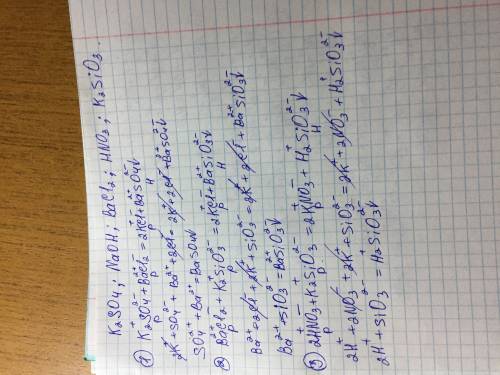 K2SO4; NaOH; BaCl2; HNO3; K2SiO3.
① K2SO4 + BaCl2 = 2KCl + BaSO4↓
2K + SO4 + Ba + 2Cl = 2K + 2Cl + BaSO4↓
SO4 + Ba = BaSO4↓
② BaCl2 + K2SiO3 = 2KCl + BaSiO3↓
Ba + 2Cl + 2K + SiO3 = 2K + 2Cl + BaSiO3↓
Ba + SiO3 = BaSiO3↓
③ 2HNO3 + K2SiO3 = 2KNO3 + H2SiO3↓
2H + 2NO3 + 2K + SiO3 = 2K + 2NO3 + H2SiO3↓
2H + SiO3 = H2SiO3↓